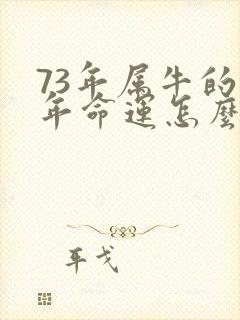 73年属牛的
年命运怎麽
年戈